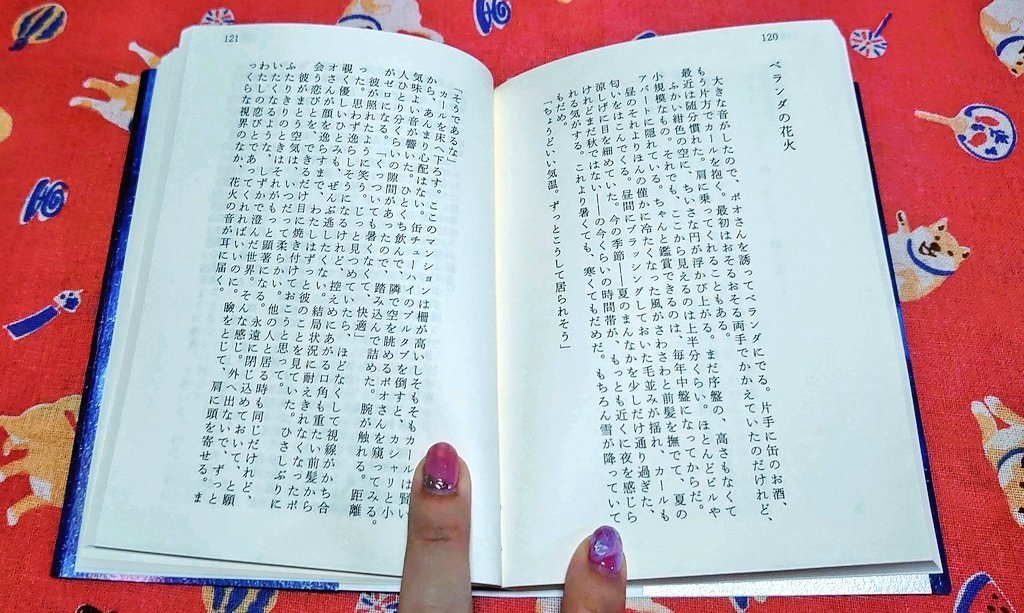 120
ベランダの花火
大きな音がしたので、ボオさんを誘ってベランダにでる。片手に缶のお酒、
もう片方でカールを抱く。最初はおそるおそる両手でかかえていたのだけれど、
最近は随分慣れた。肩に乗ってくれることもある。
ふかい紺色の空に、ちいさな円が浮かび上がる。まだ序盤の、高さもなくて
小規模なもの。それでも、ここから見えるのは上半分くらい。ほとんどビルや
アパートに隠れている。ちゃんと鑑賞できるのは、毎年中盤になってからだ。
昼のそれよりほんの僅かに冷たくなった風がさわさわと前髪を撫でて、夏の
匂いをはこんでくる。昼間にブラッシングしておいた毛並みが揺れ、カールも
涼しげに目を細めていた。今の季節――夏のまんなかを少しだけ通り過ぎた、
けれどまだ秋ではない――の今くらいの時間帯が、もっとも近くに夜を感じら
れる気がする。これより暑くても、寒くてもだめだ。もちろん雪が降っていて
もだめ。
「ちょうどいい気温。ずっとこうして居られそう」
121
「そうであるな」
カールを床へ下ろす。ここのマンションは柵が高いしそもそもカールは賢い
から、あんまり心配はない。缶チューハイのプルタブを倒すと、カシャリと小
気味よい音が響いた。ひとくち飲んで、隣で空を眺めるボオさんを窺ってみる。
人ひとり分くらいの隙間があったので、踏み込んで詰めた。腕が触れる。距離
がゼロになる。「くっついても暑くなくて、快適」
彼が照れたように笑う。じっと見つめていたら、ほどなくして視線がかち合
った。思わず逸らしそうになるけれど、控えめにあがる口角も重たい前髪から
覗く優しいひとみも、ぜんぶ逃したくない。結局状況に耐えきれなくなったボ
オさんが顔を逸らすまで、わたしはずっと彼のことを見ていた。ひさしぶりに
会う恋びとを、できるだけ目に焼き付けておこうと思って。
彼がまとう空気は、いつだって柔らかい。他の人と居る時も同じだけれど、
ふたりきりのときはそれがもっと顕著になる。永遠に閉じ込めておいて、と願
いたくなるような、しずかで澄んだ世界。そんな感じ。外へ出ないで、ずっと
わたしの恋びとであってくれればいいのに。瞼をとじて、肩に頭を寄せる。ま
っくらな視界のなか、花火の音が耳に届く。